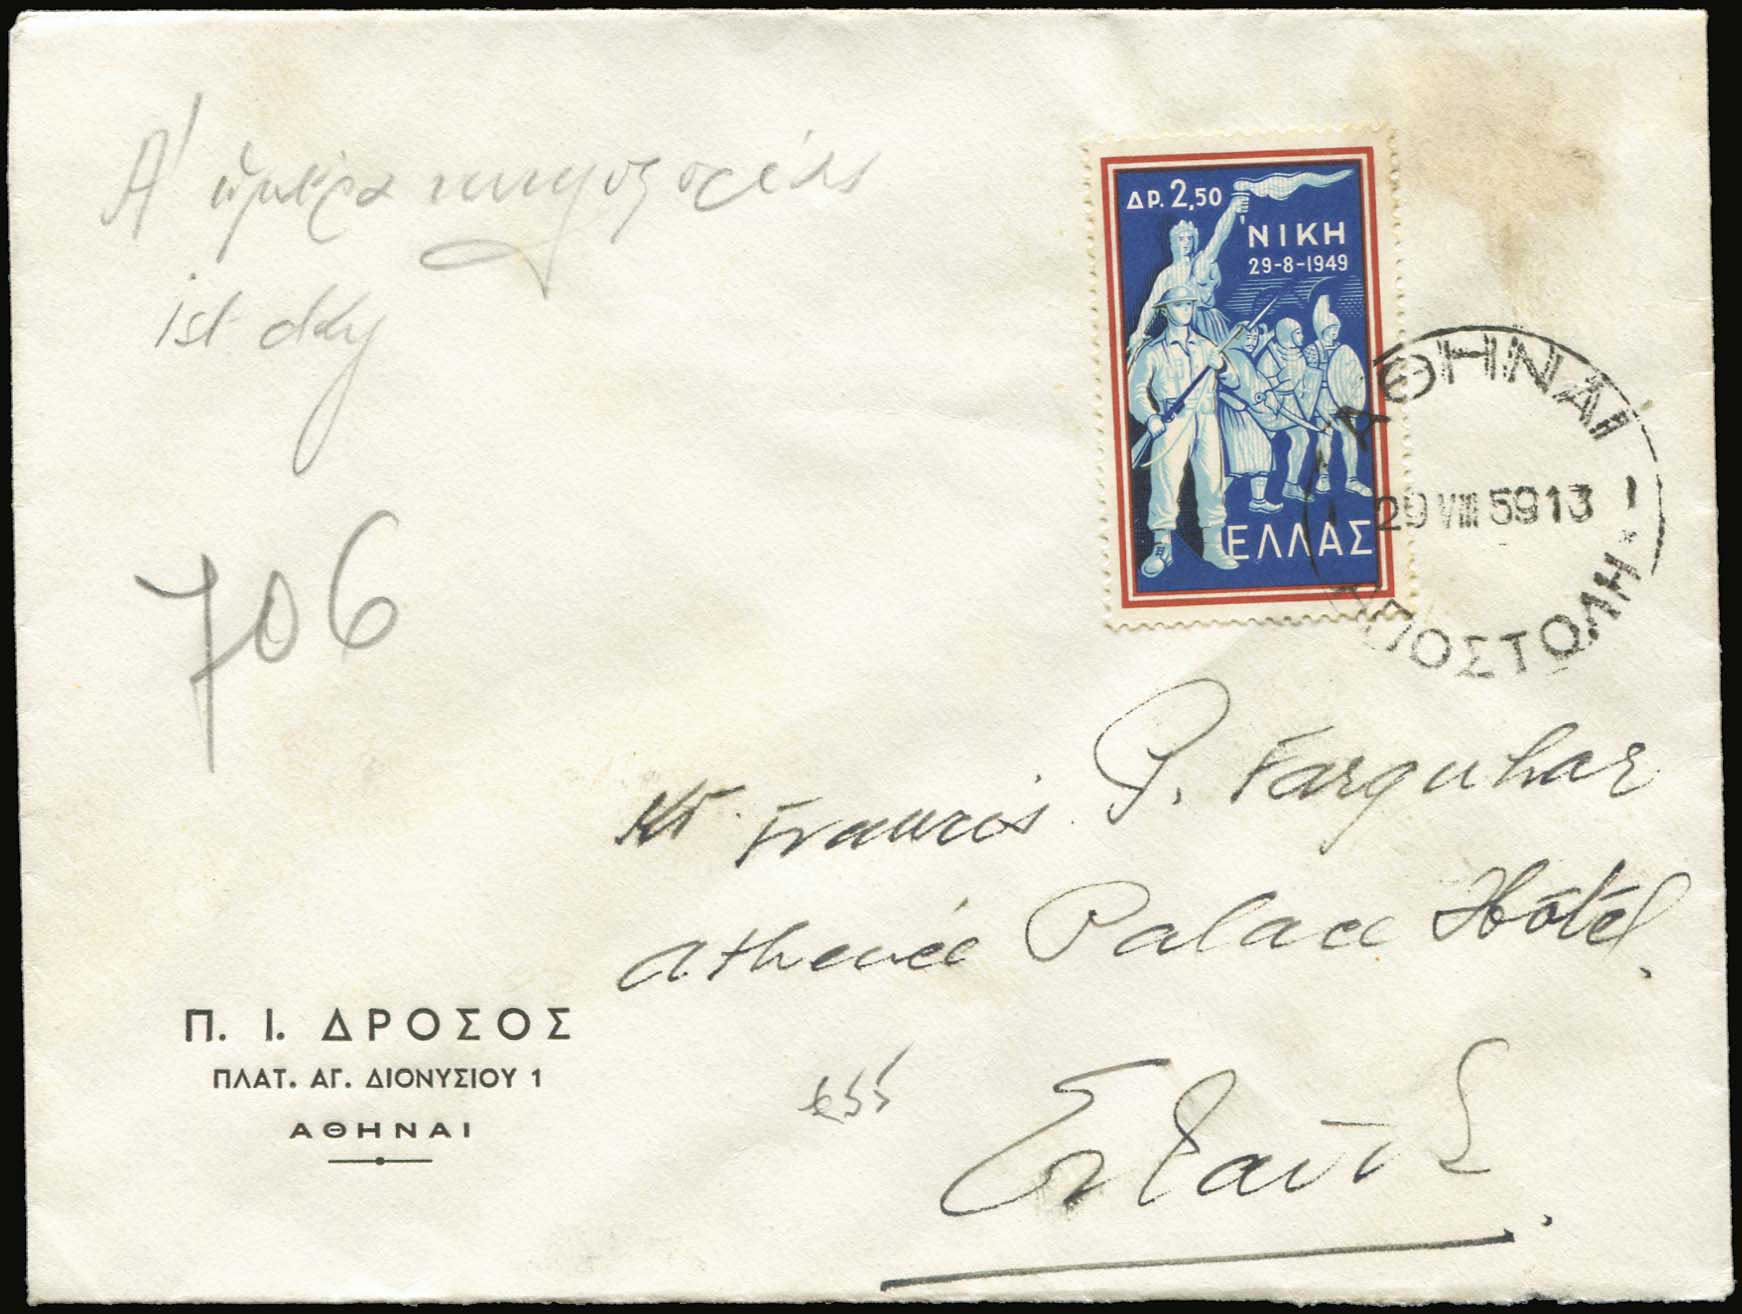 Α' ἡμέρα κυκλοφορίας
1st day
706
ΔΡ. 2,50
'ΝΙΚΗ
29-8-1949
ΕΛΛΑΣ
ΑΘΗΝΑΙ
29 VIII 59 13
ΑΠΟΣΤΟΛΗ
Κον Francis P. Farquhar
Athenée Palace Hôtel
Ἐνταῦθα
Π. Ι. ΔΡΟΣΟΣ
ΠΛΑΤ. ΑΓ. ΔΙΟΝΥΣΙΟΥ 1
ΑΘΗΝΑΙ